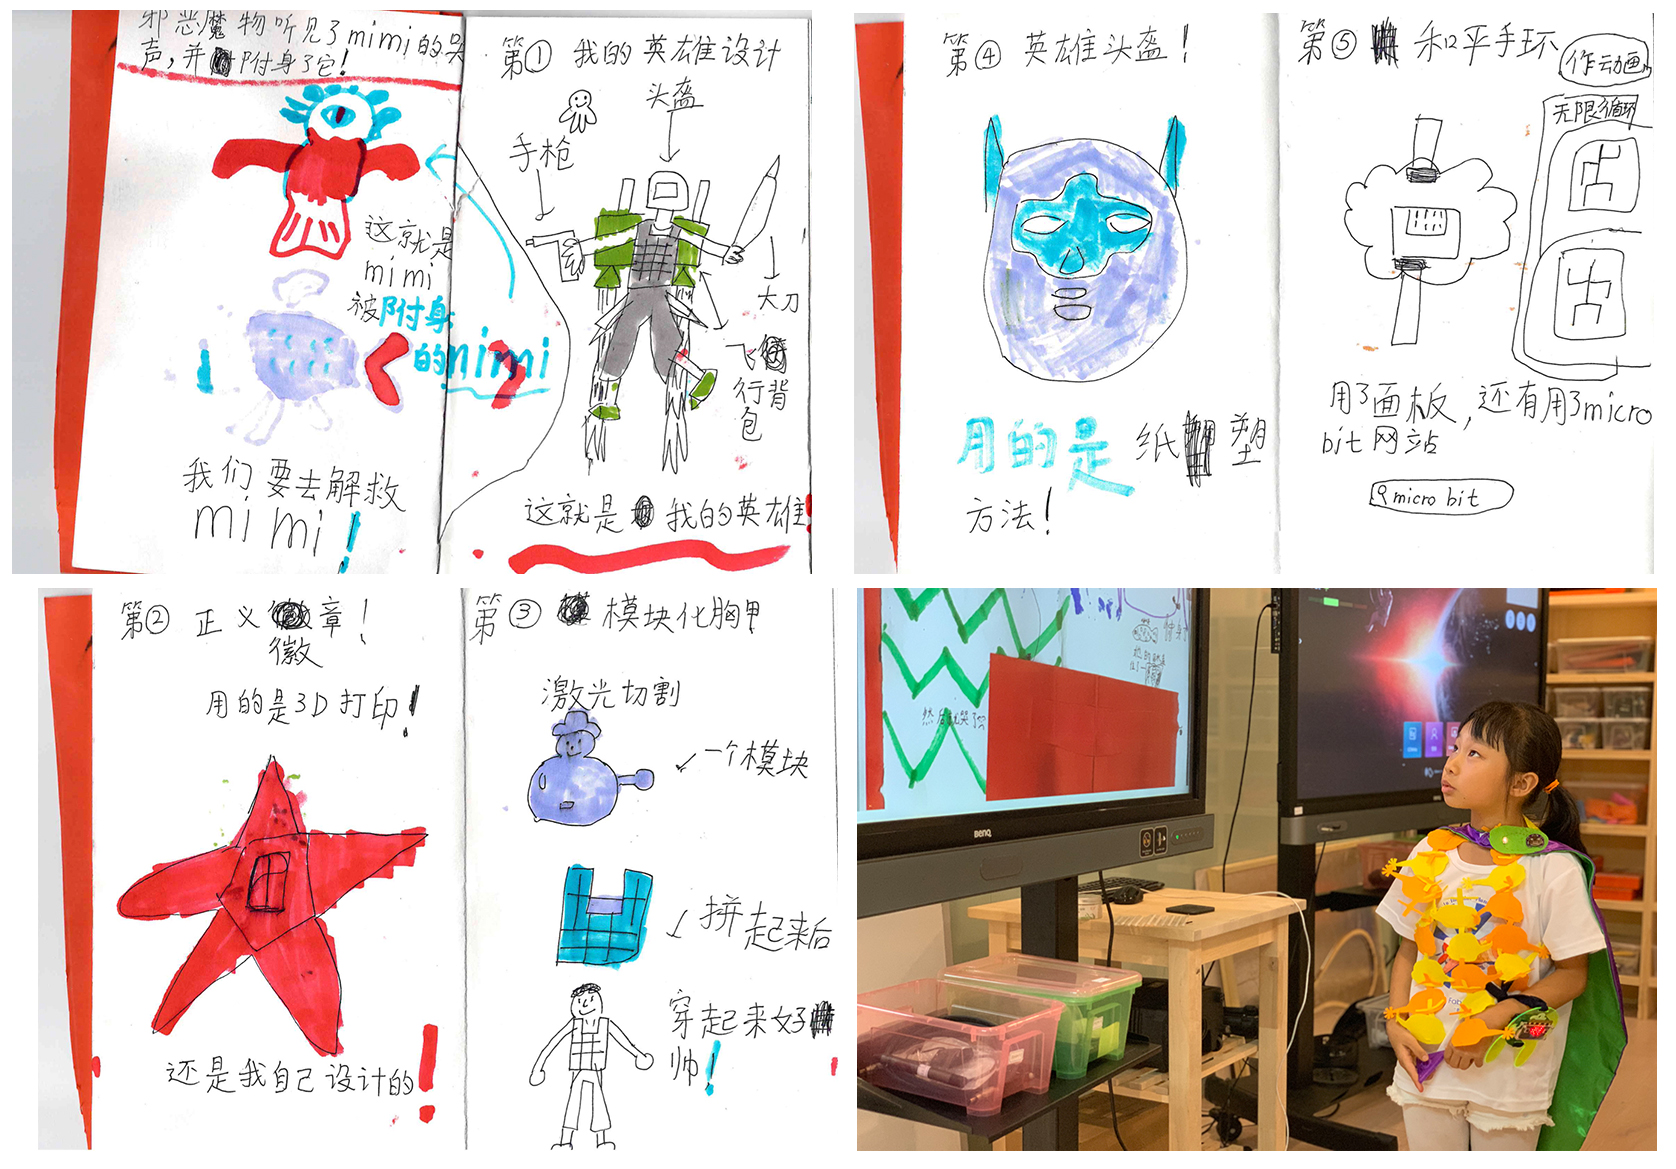 邪恶魔物听见了mimi的哭
声,并附身了它!
这就是
mimi
被附身
的mimi
我们要去解救
mimi!
第① 我的英雄设计
头盔
手枪
大刀
飞
行背
包
这就是我的英雄!
第④ 英雄头盔!
用的是 纸塑
方法!
第⑤ 和平手环
作动画
无限循环
用了面板,还有用了micro
bit网站
micro bit
第② 正义章!
徽
用的是3D打印!
还是我自己设计的!
第③ 模块化胸甲
激光切割
一个模块
拼起来后
穿起来好
帅!
然后就哭了
BenQ